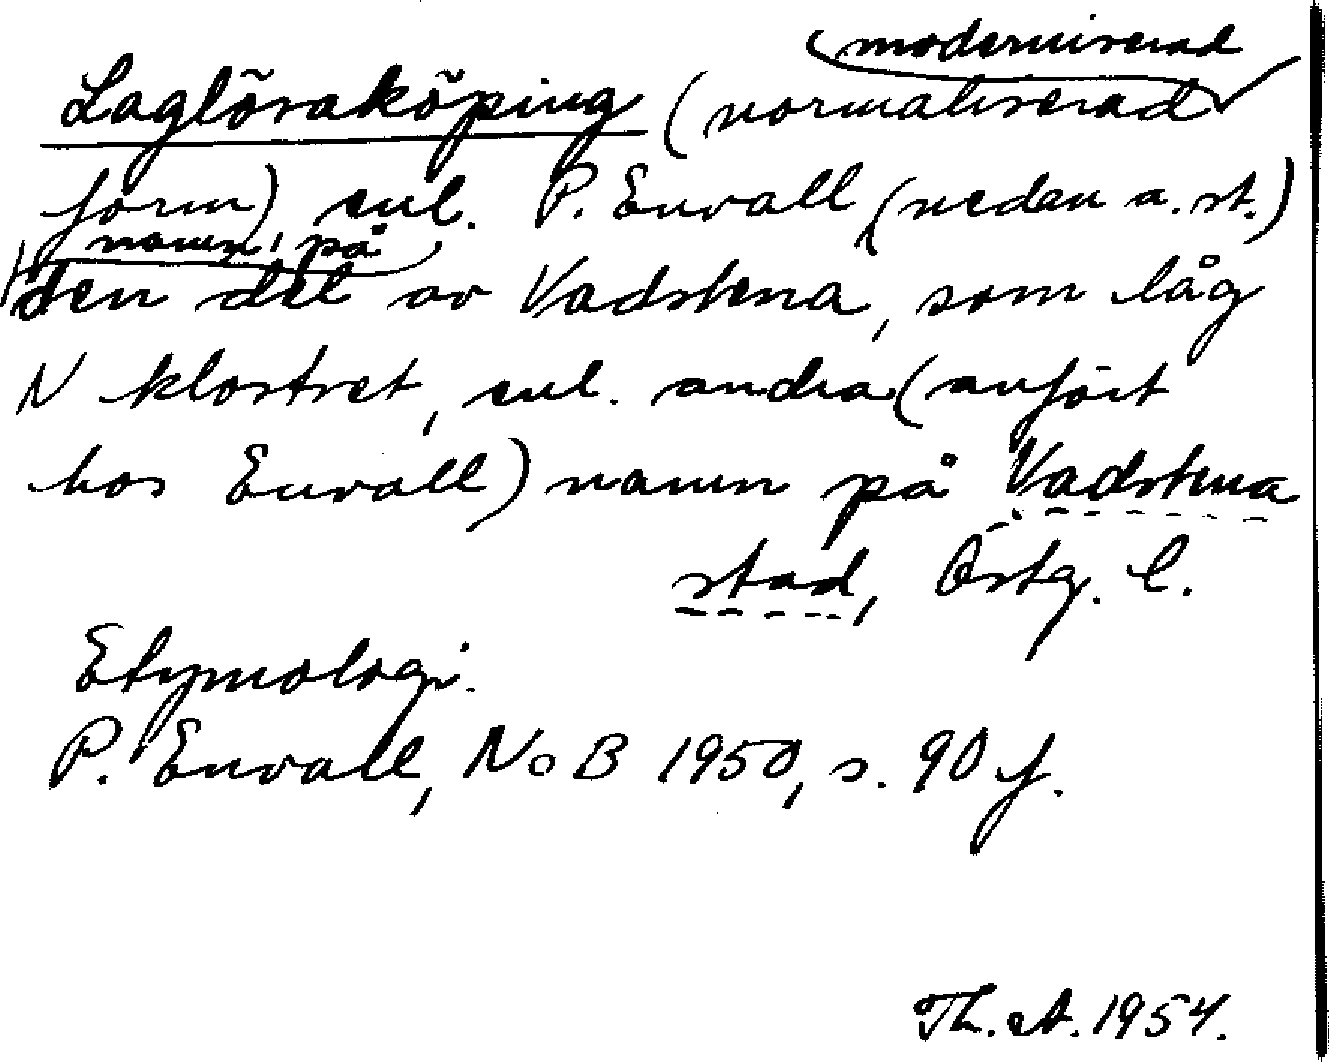 (moderniserad
Laglösaköping (normaliserad
form) enl. P. Envall (nedan a. st.)
namn på
den del av Vadstena, som låg
N klostret, enl. andra (anfört
hos Envall) namn på Vadstena
stad, Östg. l.
Etymologi.
P. Envall, NoB 1950, s. 90 f.
Th. A. 1954.